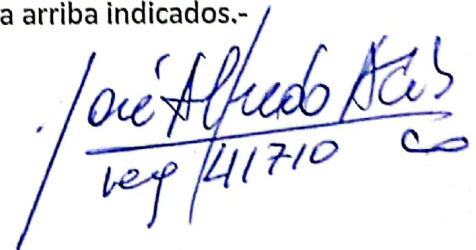 a arriba indicados.-
José Alfredo
reg 41710